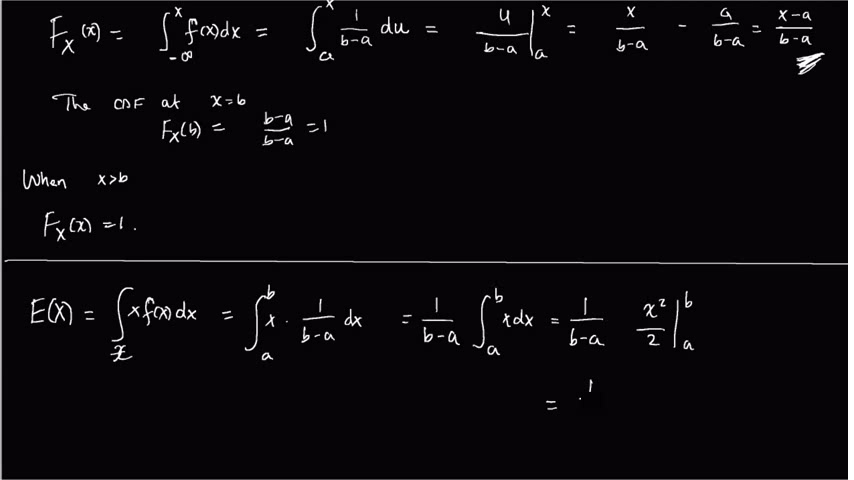 F_X(x) = ∫_{-∞}^{x} f(x)dx = ∫_{a}^{x} 1/(b-a) du = u/(b-a) |_{a}^{x} = x/(b-a) - a/(b-a) = (x-a)/(b-a)
The CDF at x=b
F_X(b) = (b-a)/(b-a) = 1
When x>b
F_X(x) = 1.
E(X) = ∫_{x} x f(x) dx = ∫_{a}^{b} x · 1/(b-a) dx = 1/(b-a) ∫_{a}^{b} x dx = 1/(b-a) x²/2 |_{a}^{b}
=